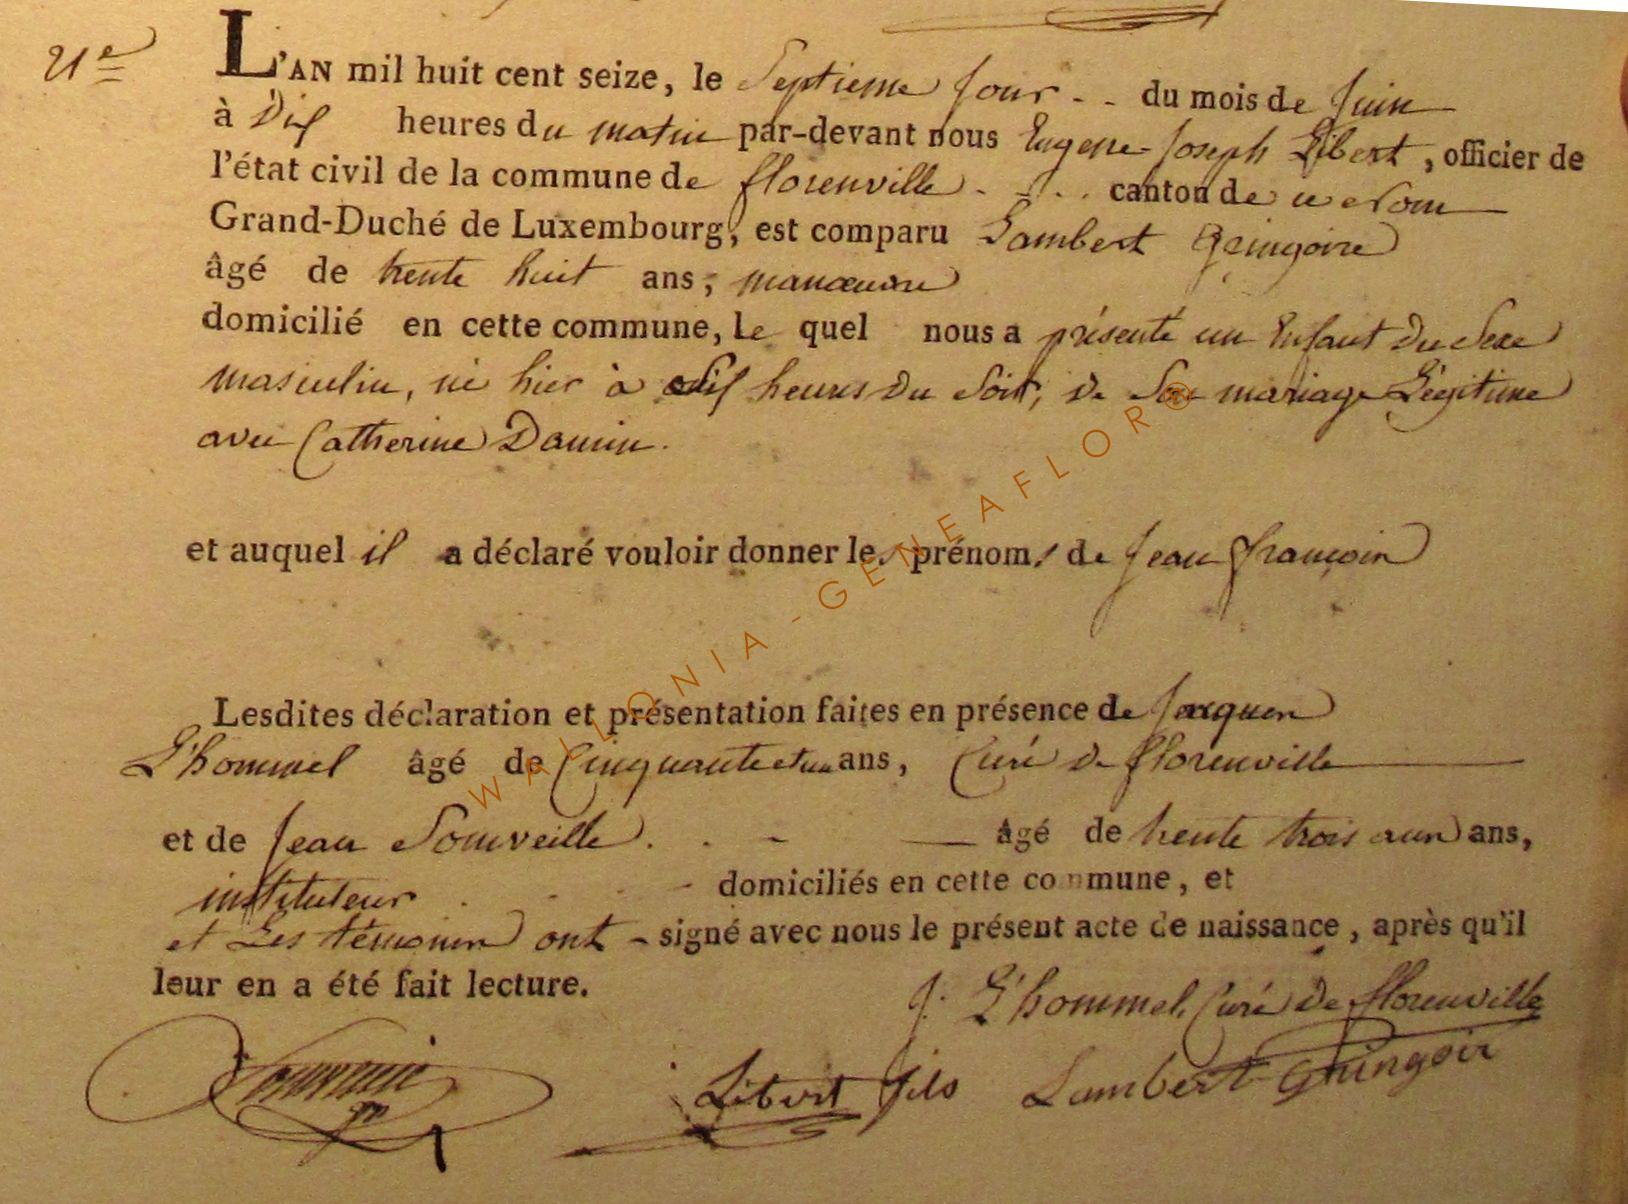 21e
L'AN mil huit cent seize, le Septieme Jour - - du mois de Juin
à Dix heures du matin par-devant nous Eugene Joseph Libert, officier de
l'état civil de la commune de florenville - - . . canton de
Grand-Duché de Luxembourg, est comparu Lambert Gringoire
âgé de trente huit ans, manœuvre
domicilié en cette commune, le quel nous a présenté un Enfant Du Sexe
masculin, né hier à dix heures Du Soir, De Son mariage Légitime
avec Catherine Damin.
et auquel il a déclaré vouloir donner les prénoms de Jean françois
Lesdites déclaration et présentation faites en présence de Jacques
L'hommel âgé de Cinquante et un ans, Curé De florenville
et de Jean Somveille . . - âgé de trente trois ans,
instituteur . . - domiciliés en cette commune, et
et Les témoins ont - signé avec nous le présent acte de naissance, après qu'il
leur en a été fait lecture.
J. L'hommel, Curé De florenville
Libert fils Lambert Gringoir
WALLONIA-GENEAFLOR®